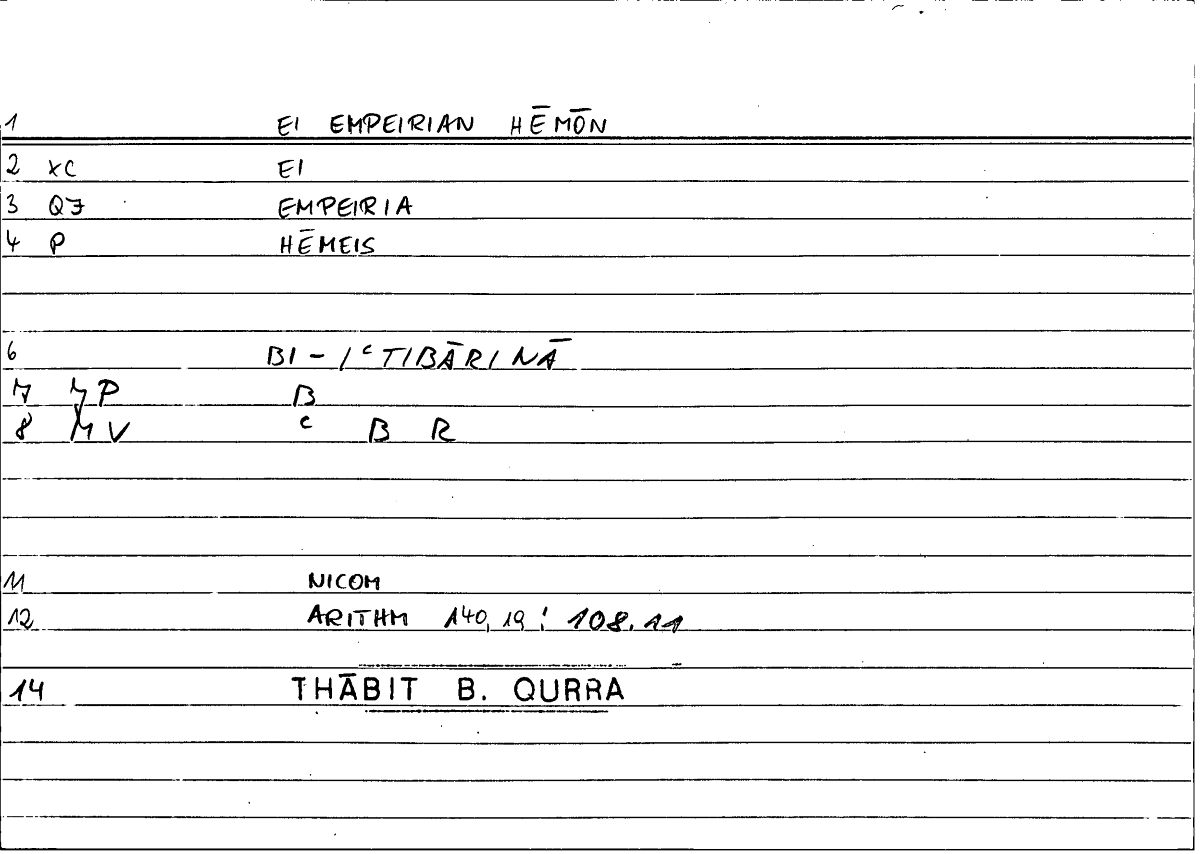 1 EI EMPEIRIAN HĒMŌN
2 XC EI
3 QJ EMPEIRIA
4 P HĒMEIS
6 BI-IᶜTIBĀRINĀ
7 P B
8 MV ᶜ B R
11 NICOM
12 ARITHM 140,19 : 108.11
14 THĀBIT B. QURRA